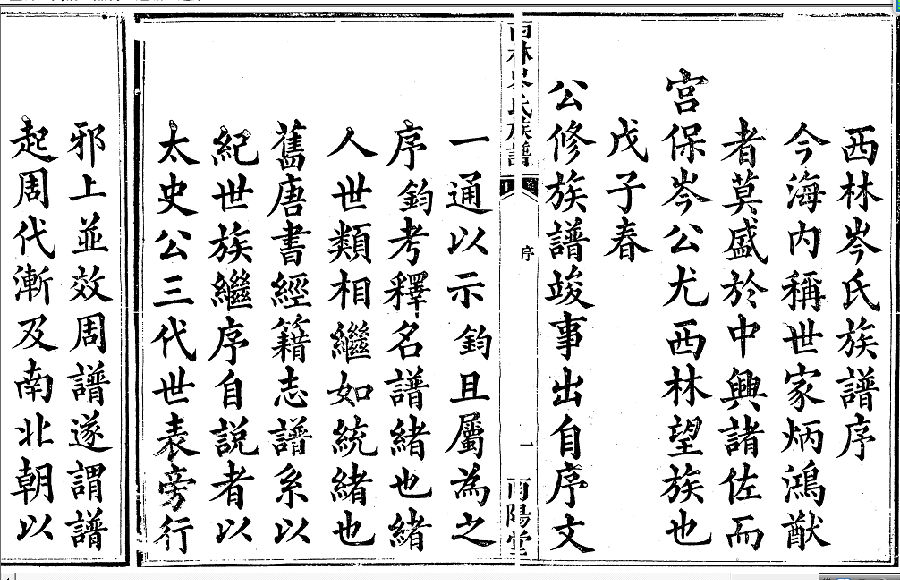 西林岑氏族譜序
今海内稱世家炳鴻猷
者莫盛於中興諸佐而
宫保岑公尤西林望族也
戊子春
公修族譜竣事出自序文
西林岑氏族譜
序
一
南陽堂
一通以示鈞且屬為之
序鈞考釋名譜緒也緒
人世類相繼如統緒也
舊唐書經籍志譜系以
紀世族繼序自説者以
太史公三代世表旁行
邪上並效周譜遂謂譜
起周代漸及南北朝以